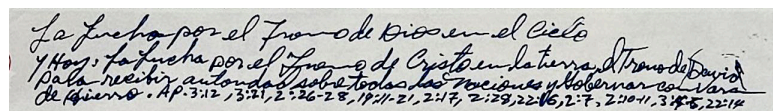 La Lucha por el Trono de Dios en el Cielo
Y Hoy: La Lucha por el Trono de Cristo en la tierra, el Trono de David
para recibir autoridad sobre todas las Naciones y Gobernar con Vara
de Hierro. AP. 3:12, 3:21, 2:26-28, 19:11-21, 2:17, 2:28, 22:16, 2:7, 2:10-11, 22:14